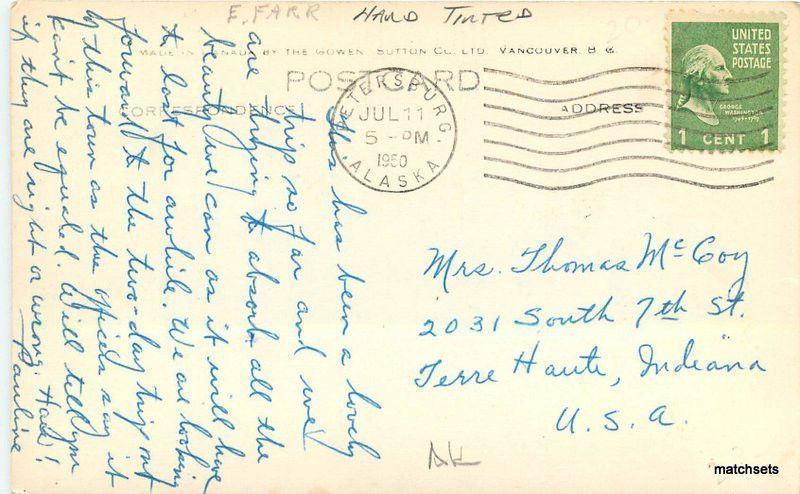 E. FARR HAND TINTED
MADE IN CANADA BY THE GOWEN SUTTON CO. LTD. VANCOUVER, B.C.
POST CARD
CORRESPONDENCE
ADDRESS
PETERSBURG
JUL 11
5 - PM
1950
ALASKA
UNITED
STATES
POSTAGE
GEORGE
WASHINGTON
1789-1797
1 CENT 1
This has been a lovely
trip so far and we
are trying to absorb all the
beauty we can as it will have
to last for awhile. We are looking
forward to the two-day trip out
of this town as the officers say it
can't be equaled. Will tell you
if they are right or wrong. Had!
Pauline
Mrs. Thomas McCoy
2031 South 7th St.
Terre Haute, Indiana
U.S.A.
AK
matchsets